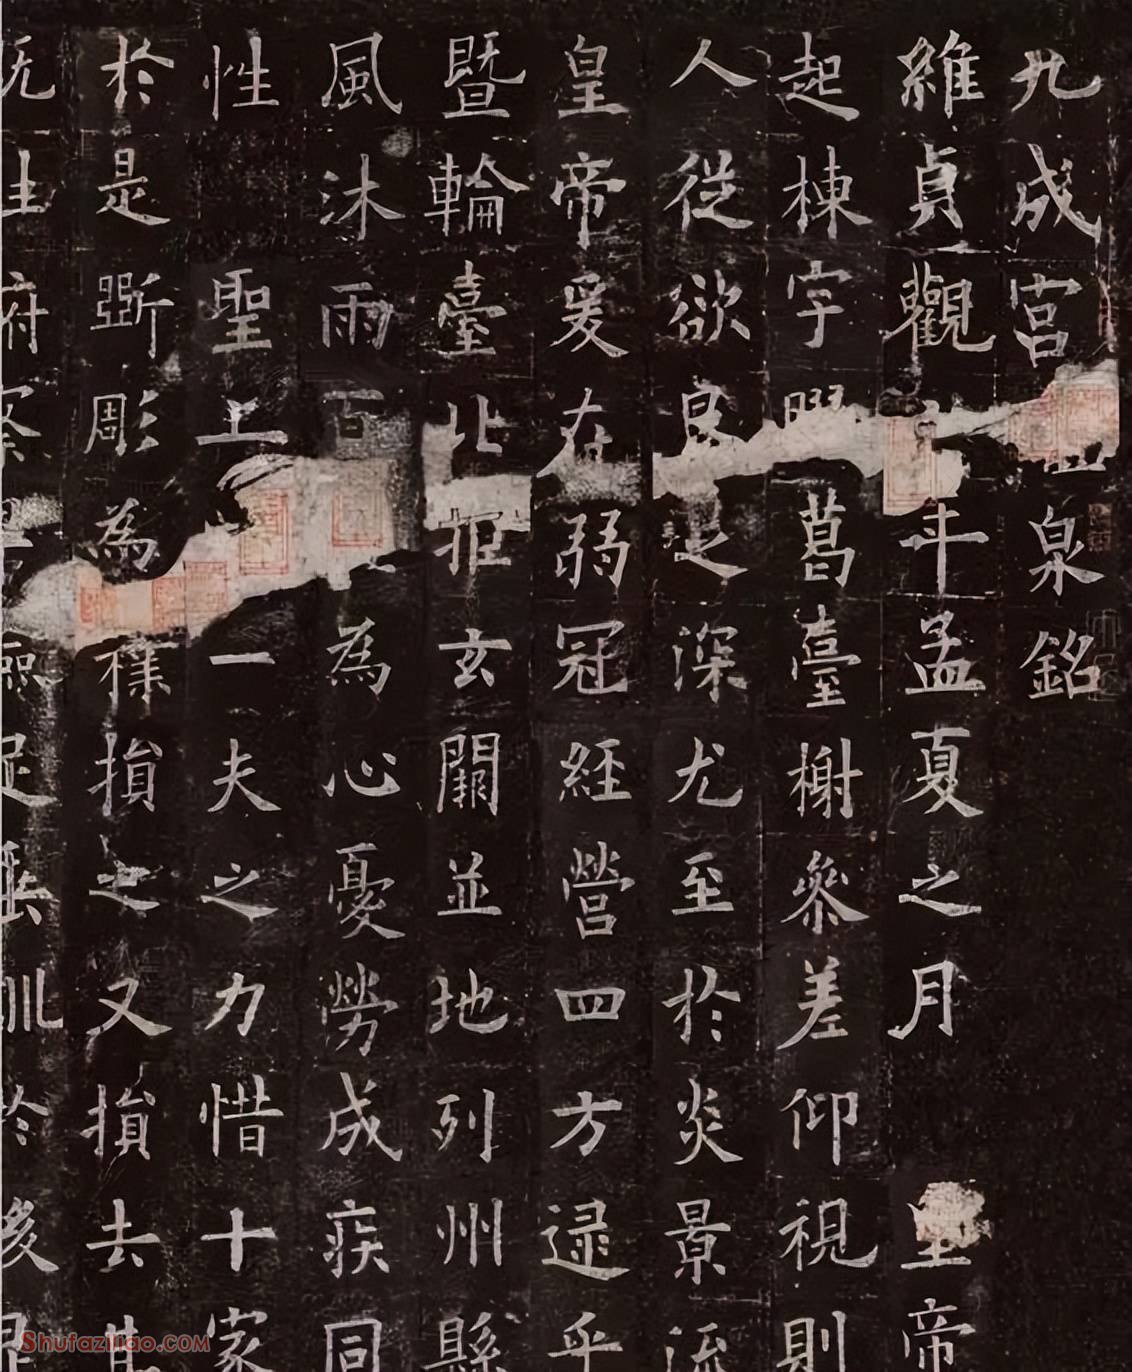 九成宮泉銘
維貞觀年孟夏之月 皇帝
起棟宇葛臺榭參差仰視則
人從欲良足深尤至於炎景流
皇帝爰在弱冠經營四方逮乎
暨輪臺北拒玄闕並地列州縣
風沐雨百為心憂勞成疾同
性 聖上一夫之力惜十家
於是斲彫為樸損之又損去其
既往府足垂訓於後
Shufaziliao.COM